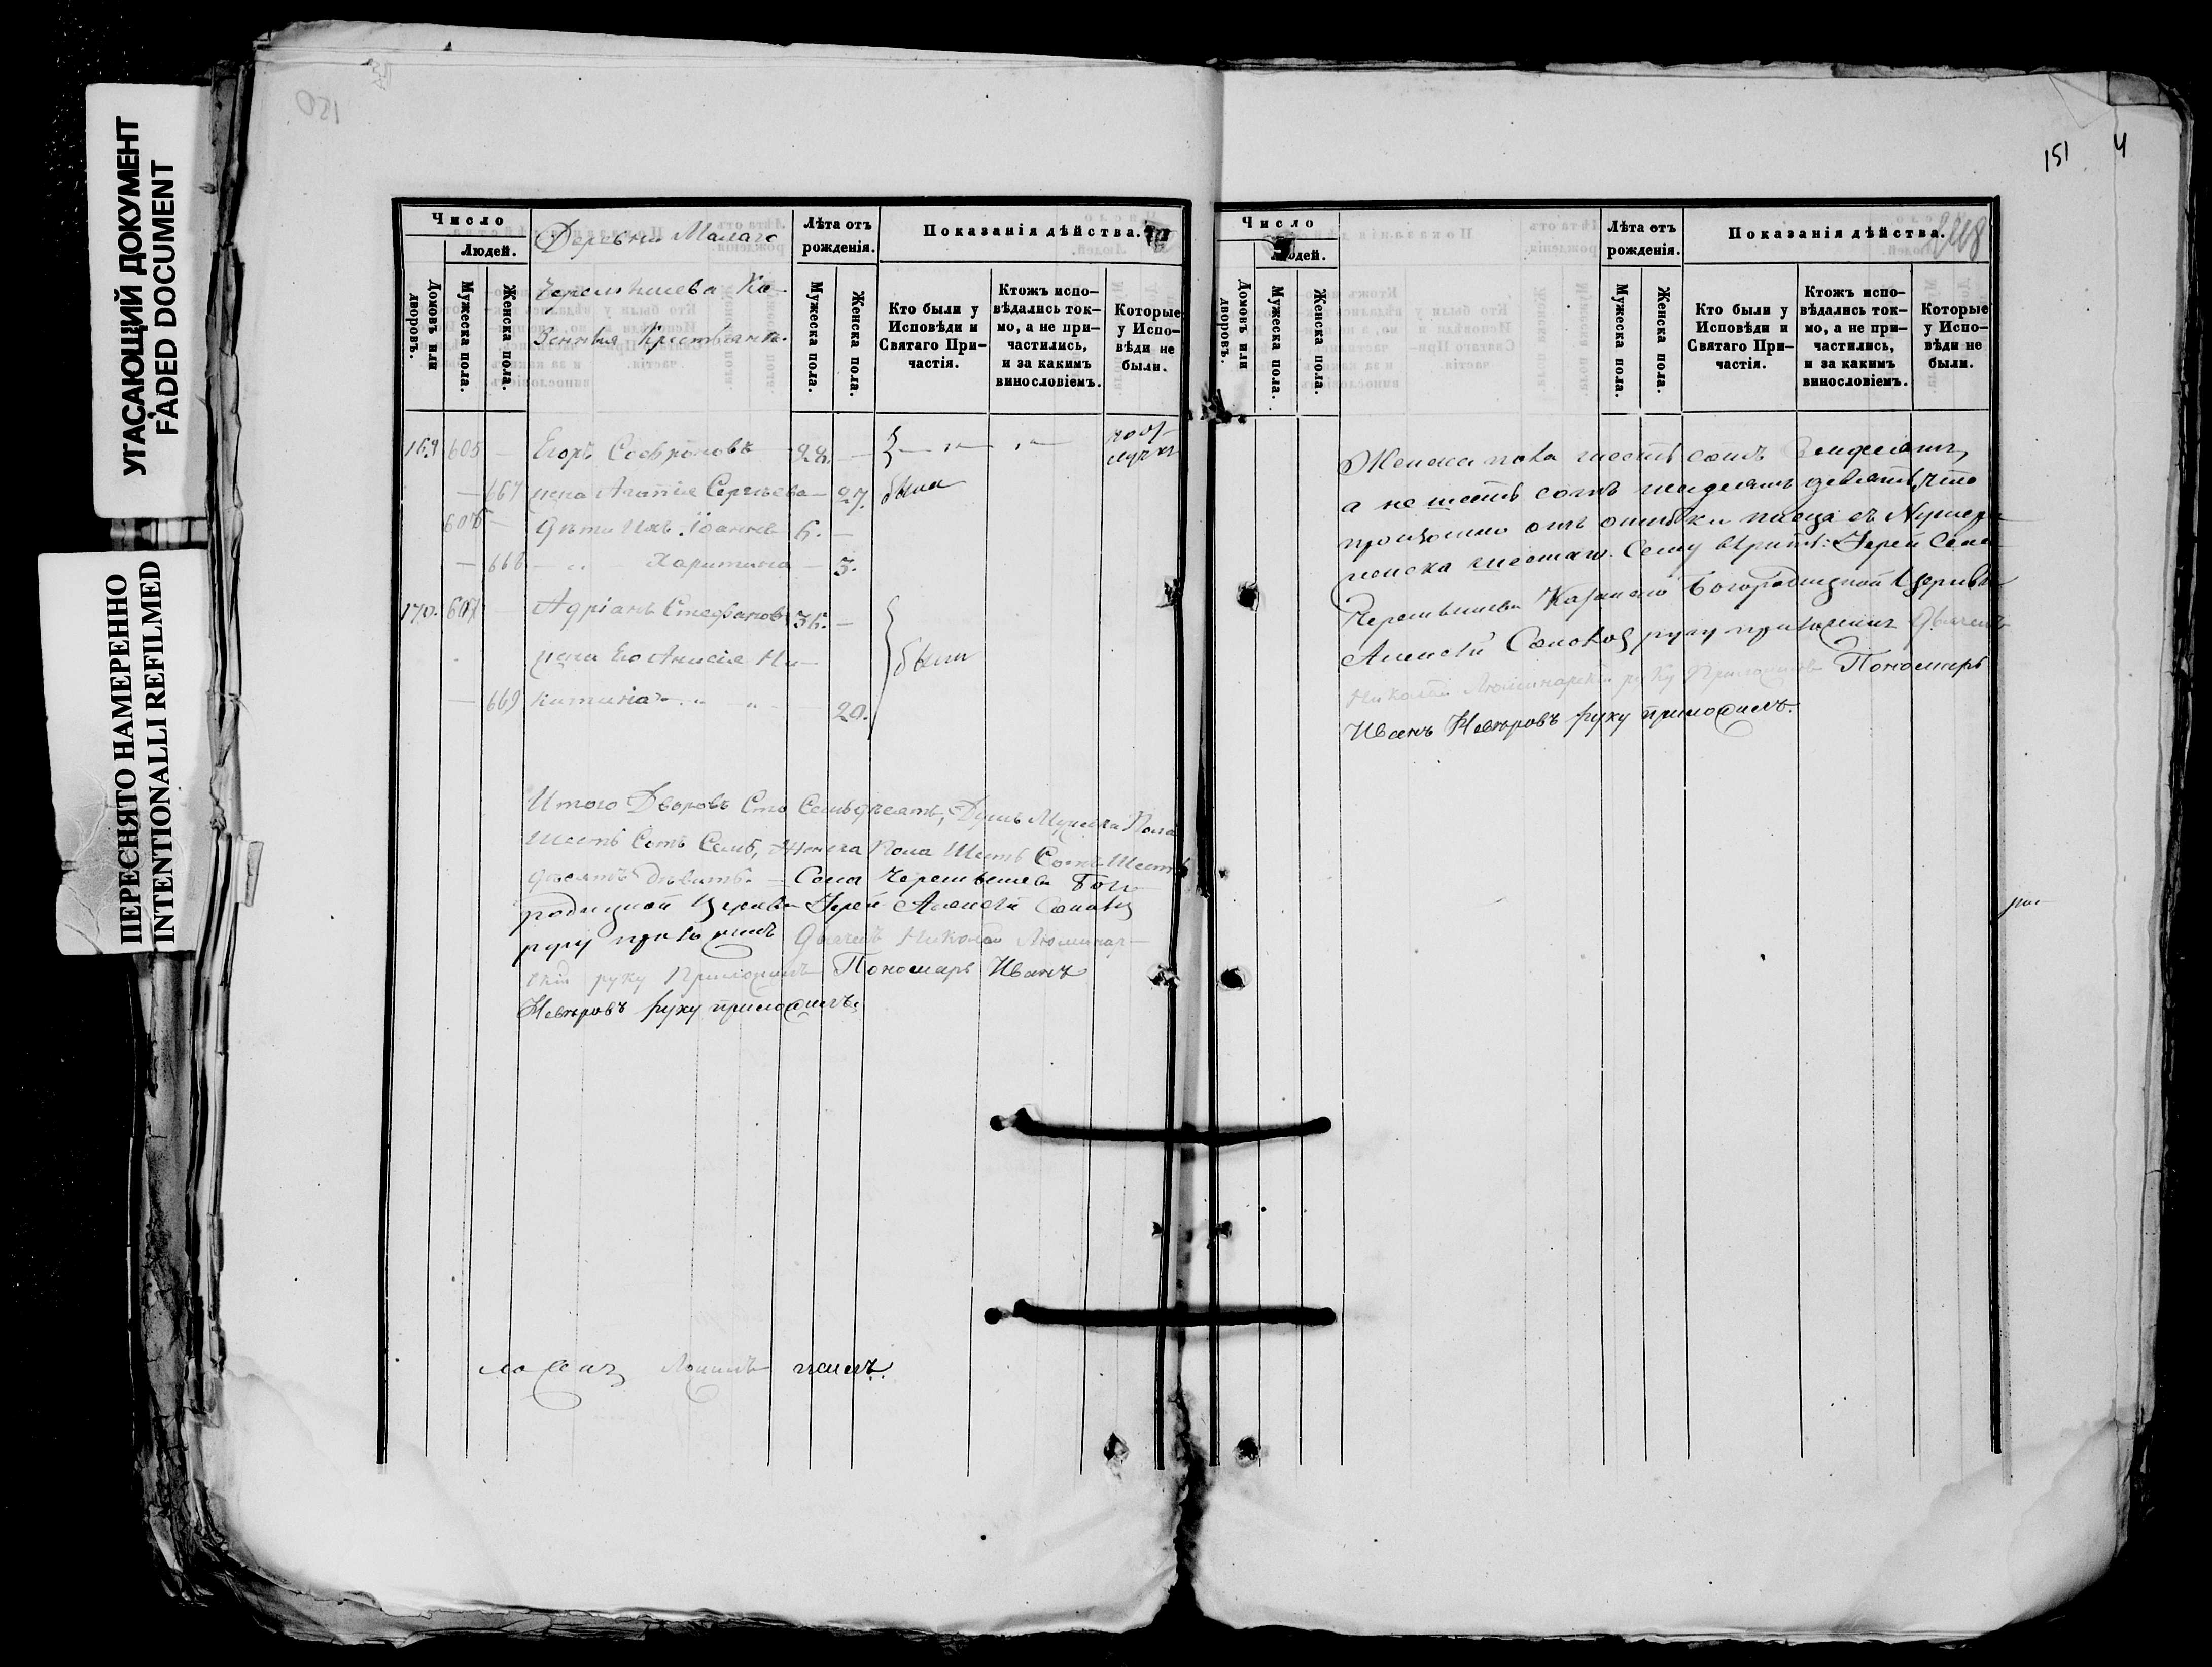 УГАСАЮЩИЙ ДОКУМЕНТ
FADED DOCUMENT
ПЕРЕСНЯТО НАМЕРЕННО
INTENTIONALLI REFILMED
Число
Людей.
Домовъ или дворовъ.
Мужеска пола.
Женска пола.
Деревни Малаго
Черемышева Ка-
зенныя Крестьяне.
Лѣта отъ рожденія.
Мужеска пола.
Женска пола.
Показанія дѣйства.
Кто были у Исповѣди и Святаго При-частія.
Ктожъ испо-вѣдались ток-мо, а не при-частились, и за какимъ винословіемъ.
Которые у Испо-вѣди не были.
169 605 — Егоръ Софроновъ 28. —
— 667 жена Агапія Сергѣева — 27. была
606 — дѣти ихъ Іоаннъ 6. —
— 668 — Харитина — 3.
170. 607 — Адріанъ Стефановъ 36. —
жена Его Анисія Ни- были
— 669 китина 20.
Итого Дворовъ Сто Семьдесятъ, Душъ Мужеска Пола
Шесть Сотъ Семь, Женска Пола Шесть Сотъ Шесть
десятъ девять. — Села Черемышева Бого
родицкой Церкви Іерей Алексѣй
руку приложилъ Дьячекъ Николай Люминар-
скій руку Приложилъ Пономарь Иванъ
Невзоровъ руку приложилъ.
151
4
248
Число
Людей.
Домовъ или дворовъ.
Мужеска пола.
Женска пола.
Лѣта отъ рожденія.
Мужеска пола.
Женска пола.
Показанія дѣйства.
Кто были у Исповѣди и Святаго При-частія.
Ктожъ испо-вѣдались ток-мо, а не при-частились, и за какимъ винословіемъ.
Которые у Испо-вѣди не были.
Женска пола шесть сотъ
а не шесть сотъ шесдесятъ девять, что
произошло отъ ошибки писца съ Нумера
женска шестаго. Сему вѣрить: Іерей Села
Черемышева Казанско Богородицкой Церкви
Алексѣй руку приложилъ Дьячекъ
Николай Люминарскій руку Приложилъ Пономарь
Иванъ Невзоровъ руку приложилъ.